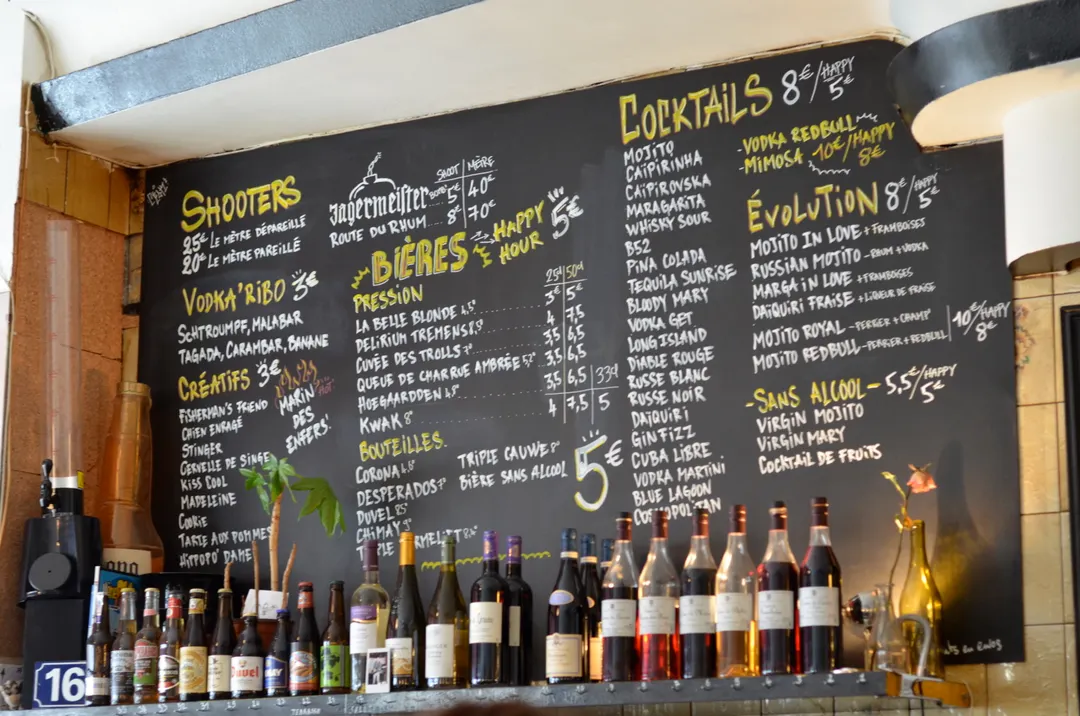 SHOOTERS
25€ LE MÈTRE DÉPAREILLÉ
20€ LE MÈTRE PAREILLÉ
VODKA'RIBO 3€
SCHTROUMPF, MALABAR
TAGADA, CARAMBAR, BANANE
CRÉATIFS 3€
FISHERMAN'S FRIEND
CHIEN ENRAGÉ
STINGER
CERVELLE DE SINGE
KISS COOL
MADELEINE
COOKIE
TARTE AUX POMMES
HIPPO' DAME
MARIN
DES
ENFERS
SHOOT MÈRE
Jägermeister 5€ 40€
ROUTE DU RHUM 8€ 70€
BIÈRES HAPPY HOUR 5€
PRESSION 25cl 50cl
LA BELLE BLONDE 4,5° 3€ 5€
DELIRIUM TREMENS 8,5° 4 7,5
CUVÉE DES TROLLS 7° 3,5 6,5
QUEUE DE CHARRUE AMBRÉE 5,2° 3,5 6,5
HOEGAARDDEN 4,5° 3,5 6,5 33cl
KWAK 8° 4 7,5 5
BOUTEILLES
CORONA 4,8°
DESPERADOS 7°
DUVEL 8,5°
TRIPLE CAUWE 8°
BIÈRE SANS ALCOOL
5€
COCKTAILS 8€/HAPPY 5€
MOJITO
CAÏPIRINHA
CAÏPIROVSKA
MARAGARITA
WHISKY SOUR
B52
PIÑA COLADA
TEQUILA SUNRISE
BLOODY MARY
VODKA GET
LONG ISLAND
DIABLE ROUGE
RUSSE BLANC
RUSSE NOIR
DAÏQUIRI
GIN FIZZ
CUBA LIBRE
VODKA MARTINI
BLUE LAGOON
COSMOPOLITAN
-VODKA REDBULL
-MIMOSA 10€/HAPPY 8€
ÉVOLUTION 8€/HAPPY 5€
MOJITO IN LOVE + FRAMBOISES
RUSSIAN MOJITO - RHUM + VODKA
MARGA IN LOVE + FRAMBOISES
DAÏQUIRI FRAISE + LIQUEUR DE FRAISE
MOJITO ROYAL - PERRIER + CHAMP'
MOJITO REDBULL - PERRIER + REDBULL
10€/HAPPY 8€
-SANS ALCOOL- 5,5€/HAPPY 5€
VIRGIN MOJITO
VIRGIN MARY
COCKTAIL DE FRUITS
Duvel
16